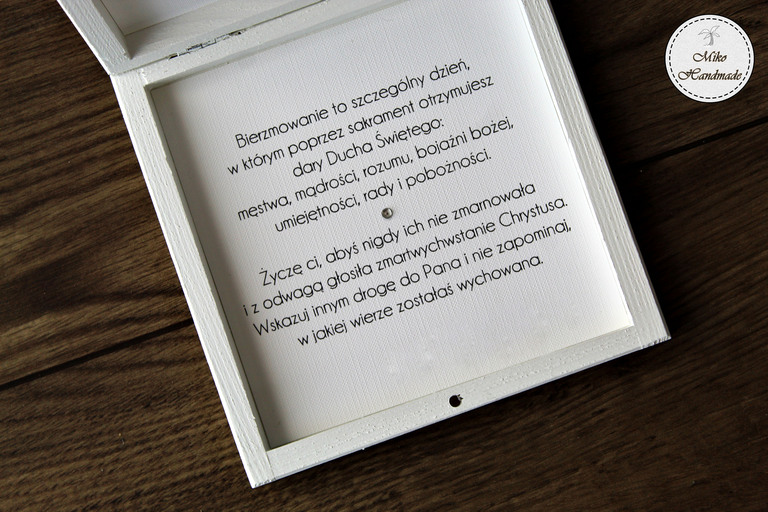 Bierzmowanie to szczególny dzień,
w którym poprzez sakrament otrzymujesz
dary Ducha Świętego:
męstwa, mądrości, rozumu, bojaźni bożej,
umiejętności, rady i pobożności.
Życzę ci, abyś nigdy ich nie zmarnowała
i z odwagą głosiła zmartwychwstanie Chrystusa.
Wskazuj innym drogę do Pana i nie zapominaj,
w jakiej wierze zostałaś wychowana.
Miko
Handmade